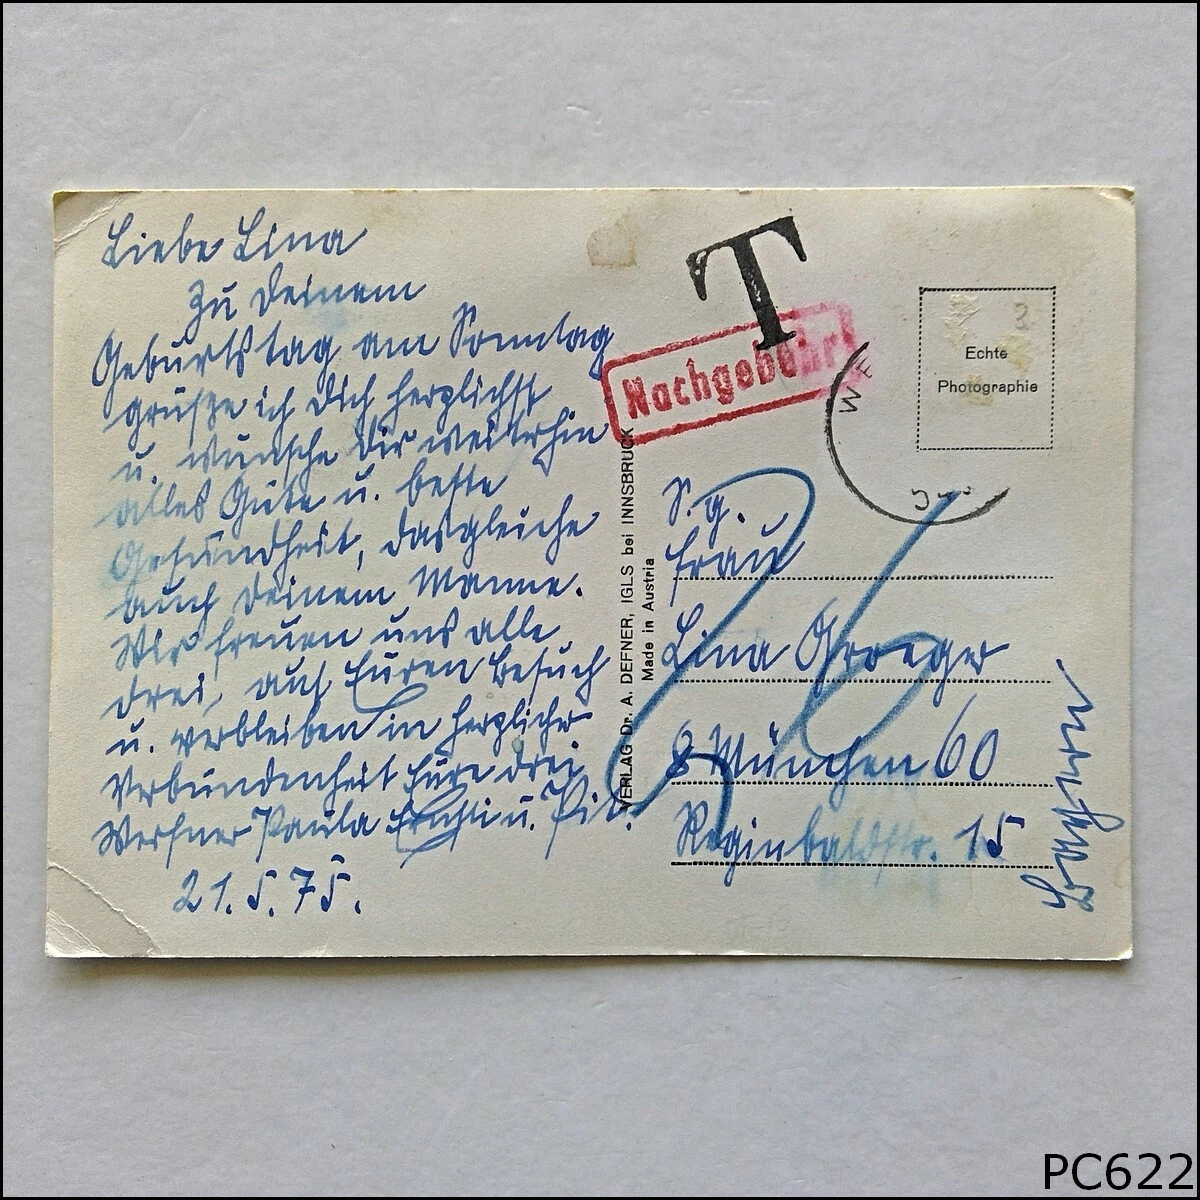 Liebe Lina
Zu Deinem
Geburtstag am Sonntag
grüße ich Dich herzlichst
u. wünsche Dir weiterhin
alles Gute u. beste
Gesundheit, dasgleiche
auch Deinem Manne.
Wir freuen uns alle
drei, auf Euren Besuch
u. verbleiben in herzlicher
Verbundenheit Eure drei
Paula u.
21.5.75.
T
Nachgebühr
Echte
Photographie
VERLAG Dr. A. DEFNER, IGLS bei INNSBRUCK
Made in Austria
S. g.
Frau
Lina Groeger
8 München 60
Reginbaldstr. 15
Bayern
PC622